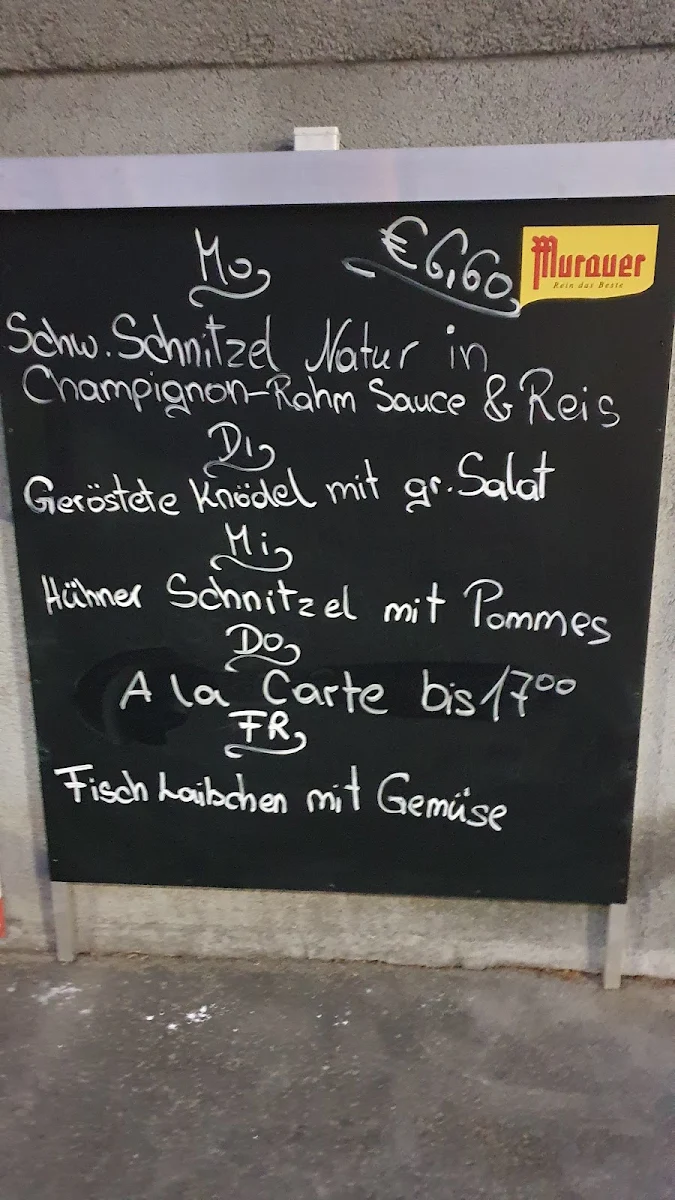 Mo
€ 6,60
Murauer
Rein das Beste
Schw. Schnitzel Natur in
Champignon-Rahm Sauce & Reis
Di
Geröstete Knödel mit gr. Salat
Mi
Hühner Schnitzel mit Pommes
Do
A la Carte bis 17⁰⁰
FR
Fisch Laibchen mit Gemüse